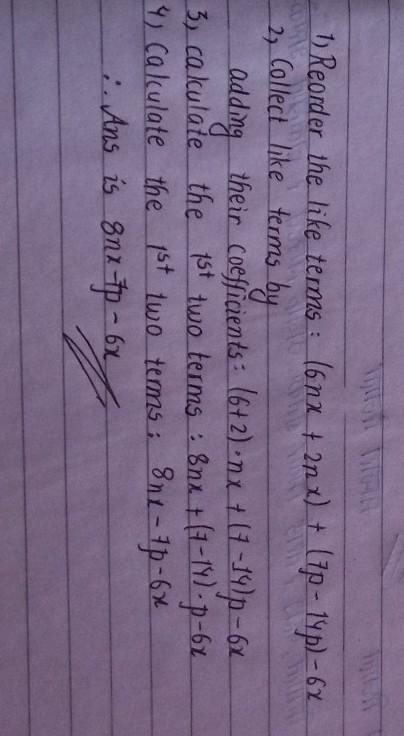 1) Reorder the like terms : (6nx + 2nx) + (7p - 14p) - 6x
2) Collect like terms by
adding their coefficients : (6+2)·nx + (7-14)p - 6x
3) calculate the 1st two terms : 8nx + (7-14)·p - 6x
4) Calculate the 1st two terms : 8nx - 7p - 6x
∴ Ans is 8nx - 7p - 6x